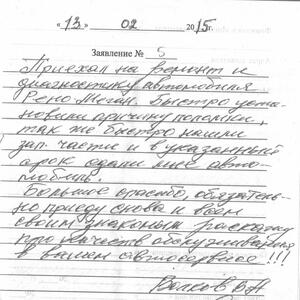 «13» 02 2015г.
Заявление № 5
Приехал на ремонт и
диагностику автомобиля
Рено Меган. Быстро уста-
новили причину поломки,
так же быстро нашли
зап. части и в указанный
срок отдали мне авто-
мобиль.
Большое спасибо, обязатель-
но приеду снова и всем
своим знакомым расскажу
про качество обслуживания
в вашем автосервисе!!!
Волков